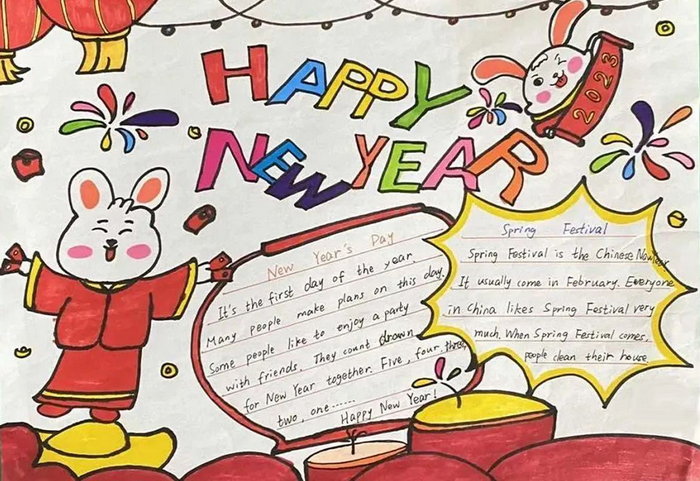 HAPPY
NEW YEAR
2023
New Year's Day
It's the first day of the year
Many people make plans on this day.
Some people like to enjoy a party
with friends. They count drown
for New Year together. Five, four, three,
two, one......
Happy New Year!
Spring Festival
Spring Festival is the Chinese New Year
It usually come in February. Everyone
in China likes Spring Festival very
much. When Spring Festival comes,
people clean their house.